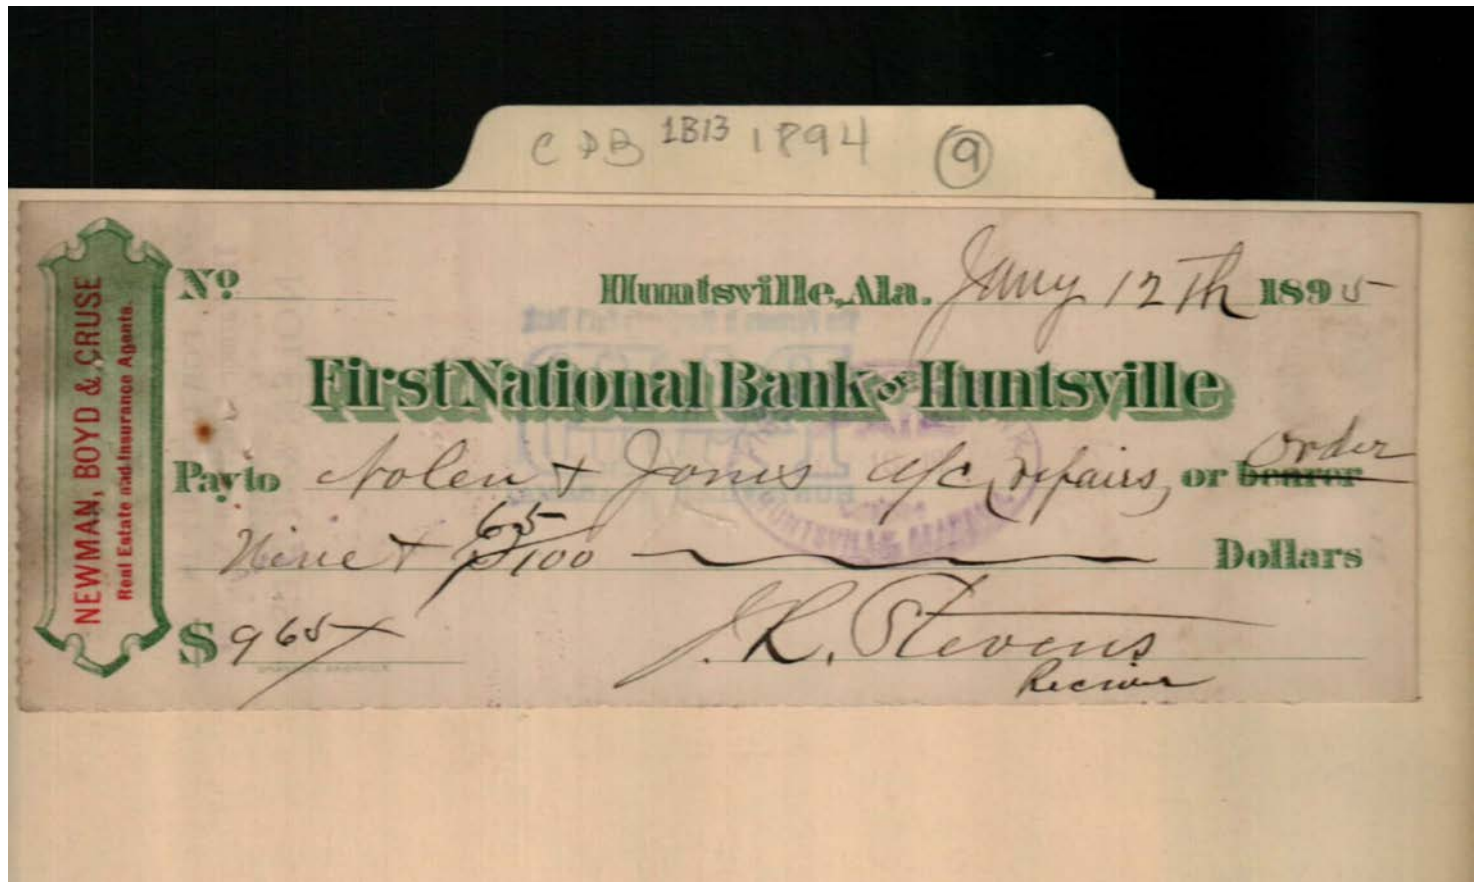 CDB 1B13 1894 9
NEWMAN, BOYD & CRUSE
Real Estate nad Insurance Agents.
No
Huntsville, Ala. Jany 12Th 1895
First National Bank OF Huntsville
Pay to Nolen + Jones a/c repairs, or bearer Order
Nine + 65/100 Dollars
$ 965
J. R. Stevens
Reciver